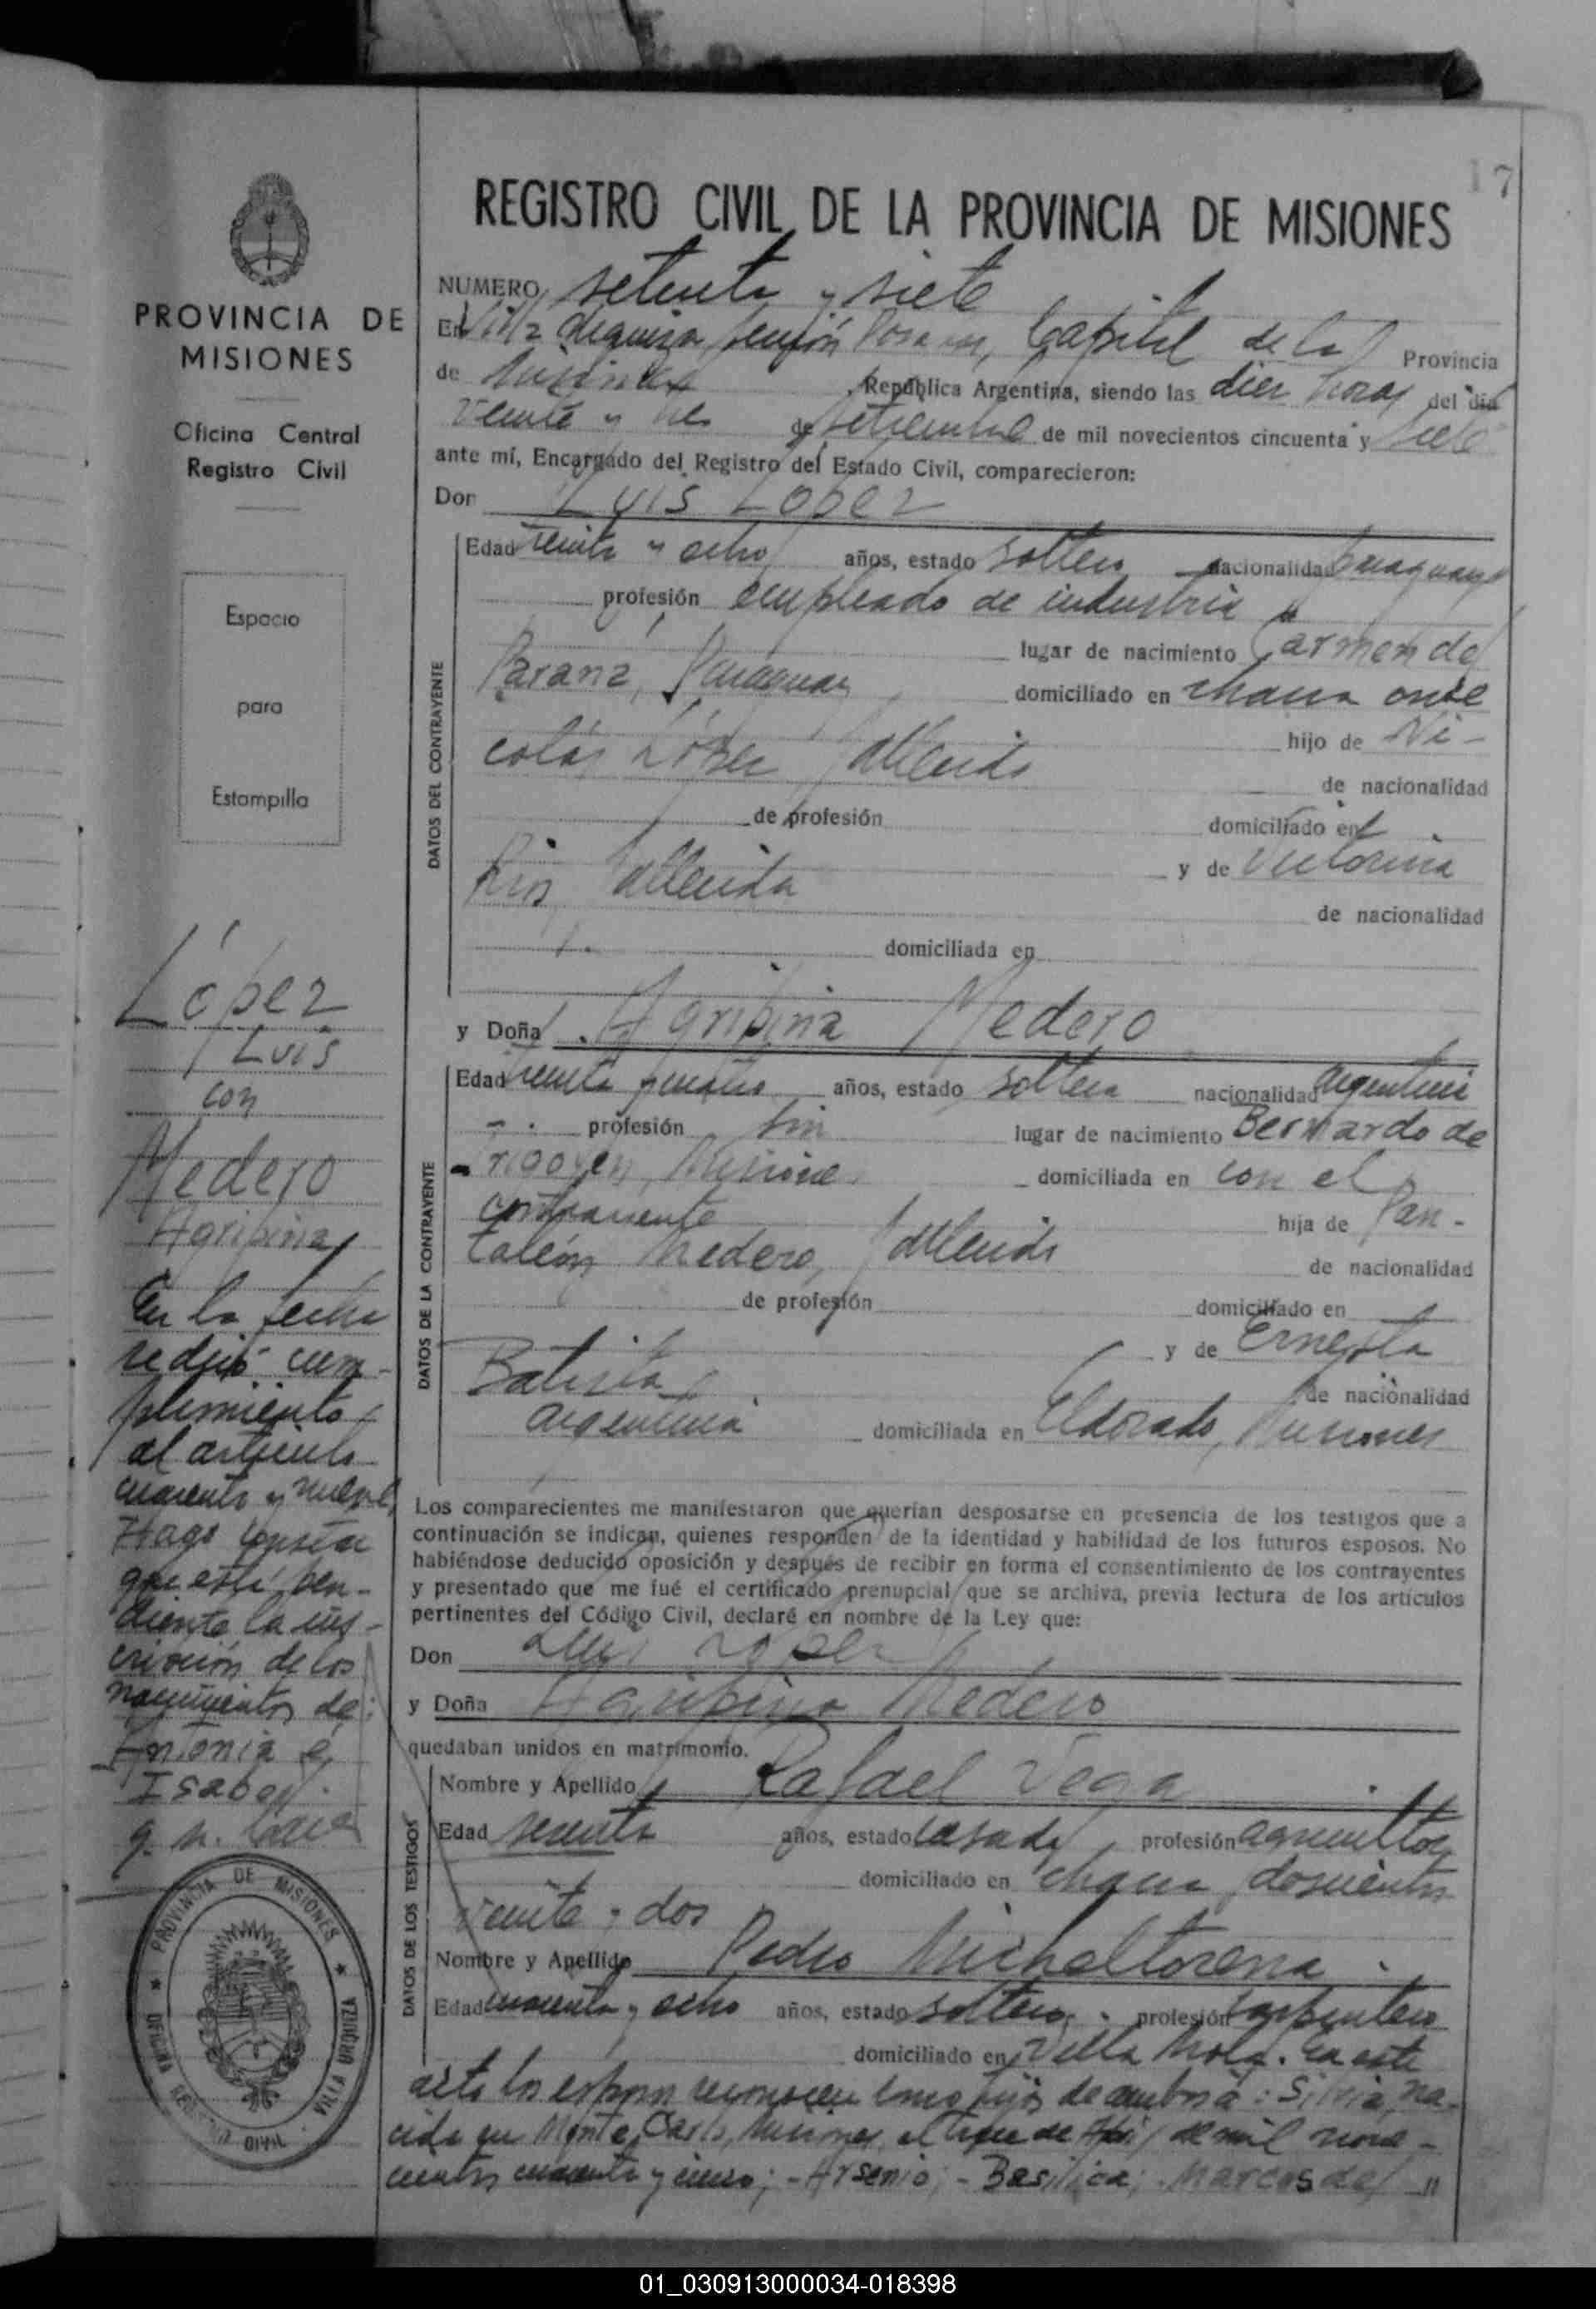 17
REGISTRO CIVIL DE LA PROVINCIA DE MISIONES
PROVINCIA DE
MISIONES
Oficina Central
Registro Civil
Espacio
para
Estampilla
López
Luis
con
Medero
Agripina
En la fecha
se dió cum-
plimiento
al artículo
cuarenta y nueve,
Hago constar
que está pen-
diente la ins-
cripción de los
nacimientos de:
Antonia e
Isabel.
PROVINCIA DE MISIONES
OFICINA REGISTRO CIVIL VILLA URQUIZA
NUMERO setenta y siete
En Villa Urquiza, Capital de la Provincia
de Misiones, República Argentina, siendo las diez horas del día
veinte y tres de setiembre de mil novecientos cincuenta y siete
ante mí, Encargado del Registro del Estado Civil, comparecieron:
Don Luis López
DATOS DEL CONTRAYENTE
Edad treinta y ocho años, estado soltero nacionalidad paraguayo
profesión empleado de industria
lugar de nacimiento Carmen del
Paraná, Paraguay domiciliado en chacra once
hijo de Ni-
colás López fallecido
de nacionalidad
de profesión domiciliado en
y de Victorina
Ríos fallecida
de nacionalidad
domiciliada en
y Doña Agripina Medero
DATOS DE LA CONTRAYENTE
Edad treinta y cuatro años, estado soltera nacionalidad argentina
profesión sin lugar de nacimiento Bernardo de
Irigoyen, Misiones domiciliada en con el
contrayente hija de Pan-
taleón Medero, fallecido
de nacionalidad
de profesión domiciliado en
y de Ernesta
Batista
de nacionalidad
argentina domiciliada en Eldorado, Misiones
Los comparecientes me manifestaron que querían desposarse en presencia de los testigos que a
continuación se indican, quienes responden de la identidad y habilidad de los futuros esposos. No
habiéndose deducido oposición y después de recibir en forma el consentimiento de los contrayentes
y presentado que me fué el certificado prenupcial que se archiva, previa lectura de los artículos
pertinentes del Código Civil, declaré en nombre de la Ley que:
Don Luis López
y Doña Agripina Medero
quedaban unidos en matrimonio.
DATOS DE LOS TESTIGOS
Nombre y Apellido Rafael Vega
Edad sesenta años, estado casado, profesión agricultor
domiciliado en chacra doscientos
veinte y dos
Nombre y Apellido Pedro Micheltorena.
Edad cuarenta y ocho años, estado soltero. profesión carpintero
domiciliado en Villa Mola. En este
acto los esposos reconocen como hijos de ambos a: Silvia, na-
cida en Monte Carlo, Misiones, el trece de Abril de mil nove-
cientos cuarenta y cinco; - Arsenio; - Basilica; - Marcos del
01_030913000034-018398